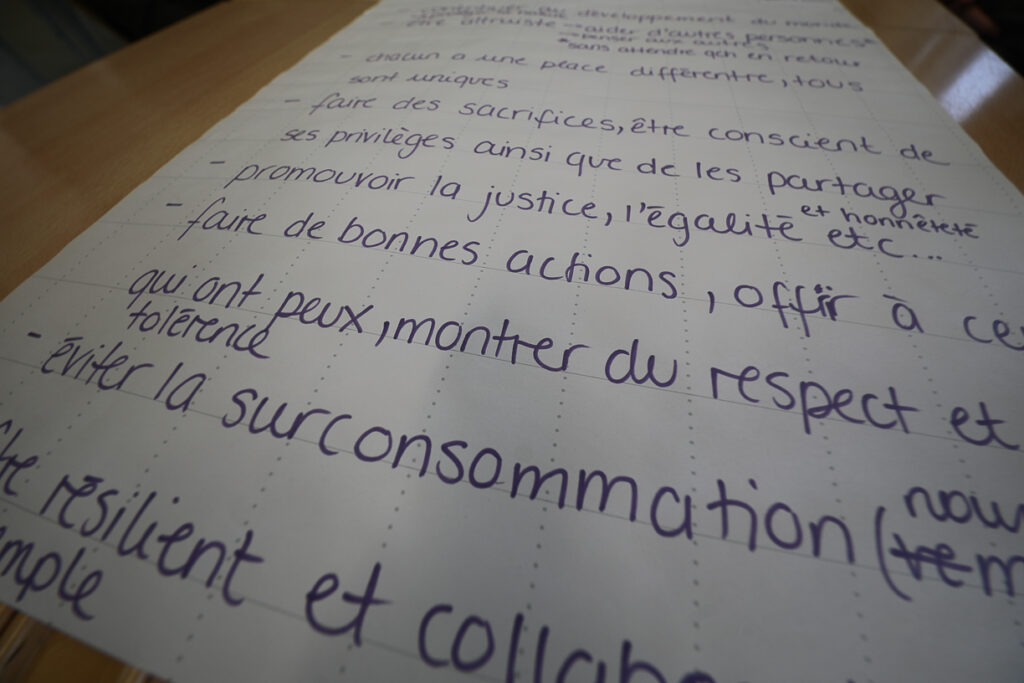 développement du monde
être altruiste → aider d'autres personnes*
→ penser aux autres
*sans attendre qch en retour
- chacun a une peace différentre, tous
sont uniques
- faire des sacrifices, être conscient de
ses privilèges ainsi que de les partager
- promouvoir la justice, l'égalité et honnêteté etc...
- faire de bonnes actions, offir à
qui ont peux, montrer du respect et
tolérence
- éviter la surconsommation (
résilient et